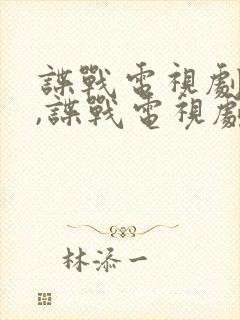 諜戰電視劇
,諜戰電視劇
林添一